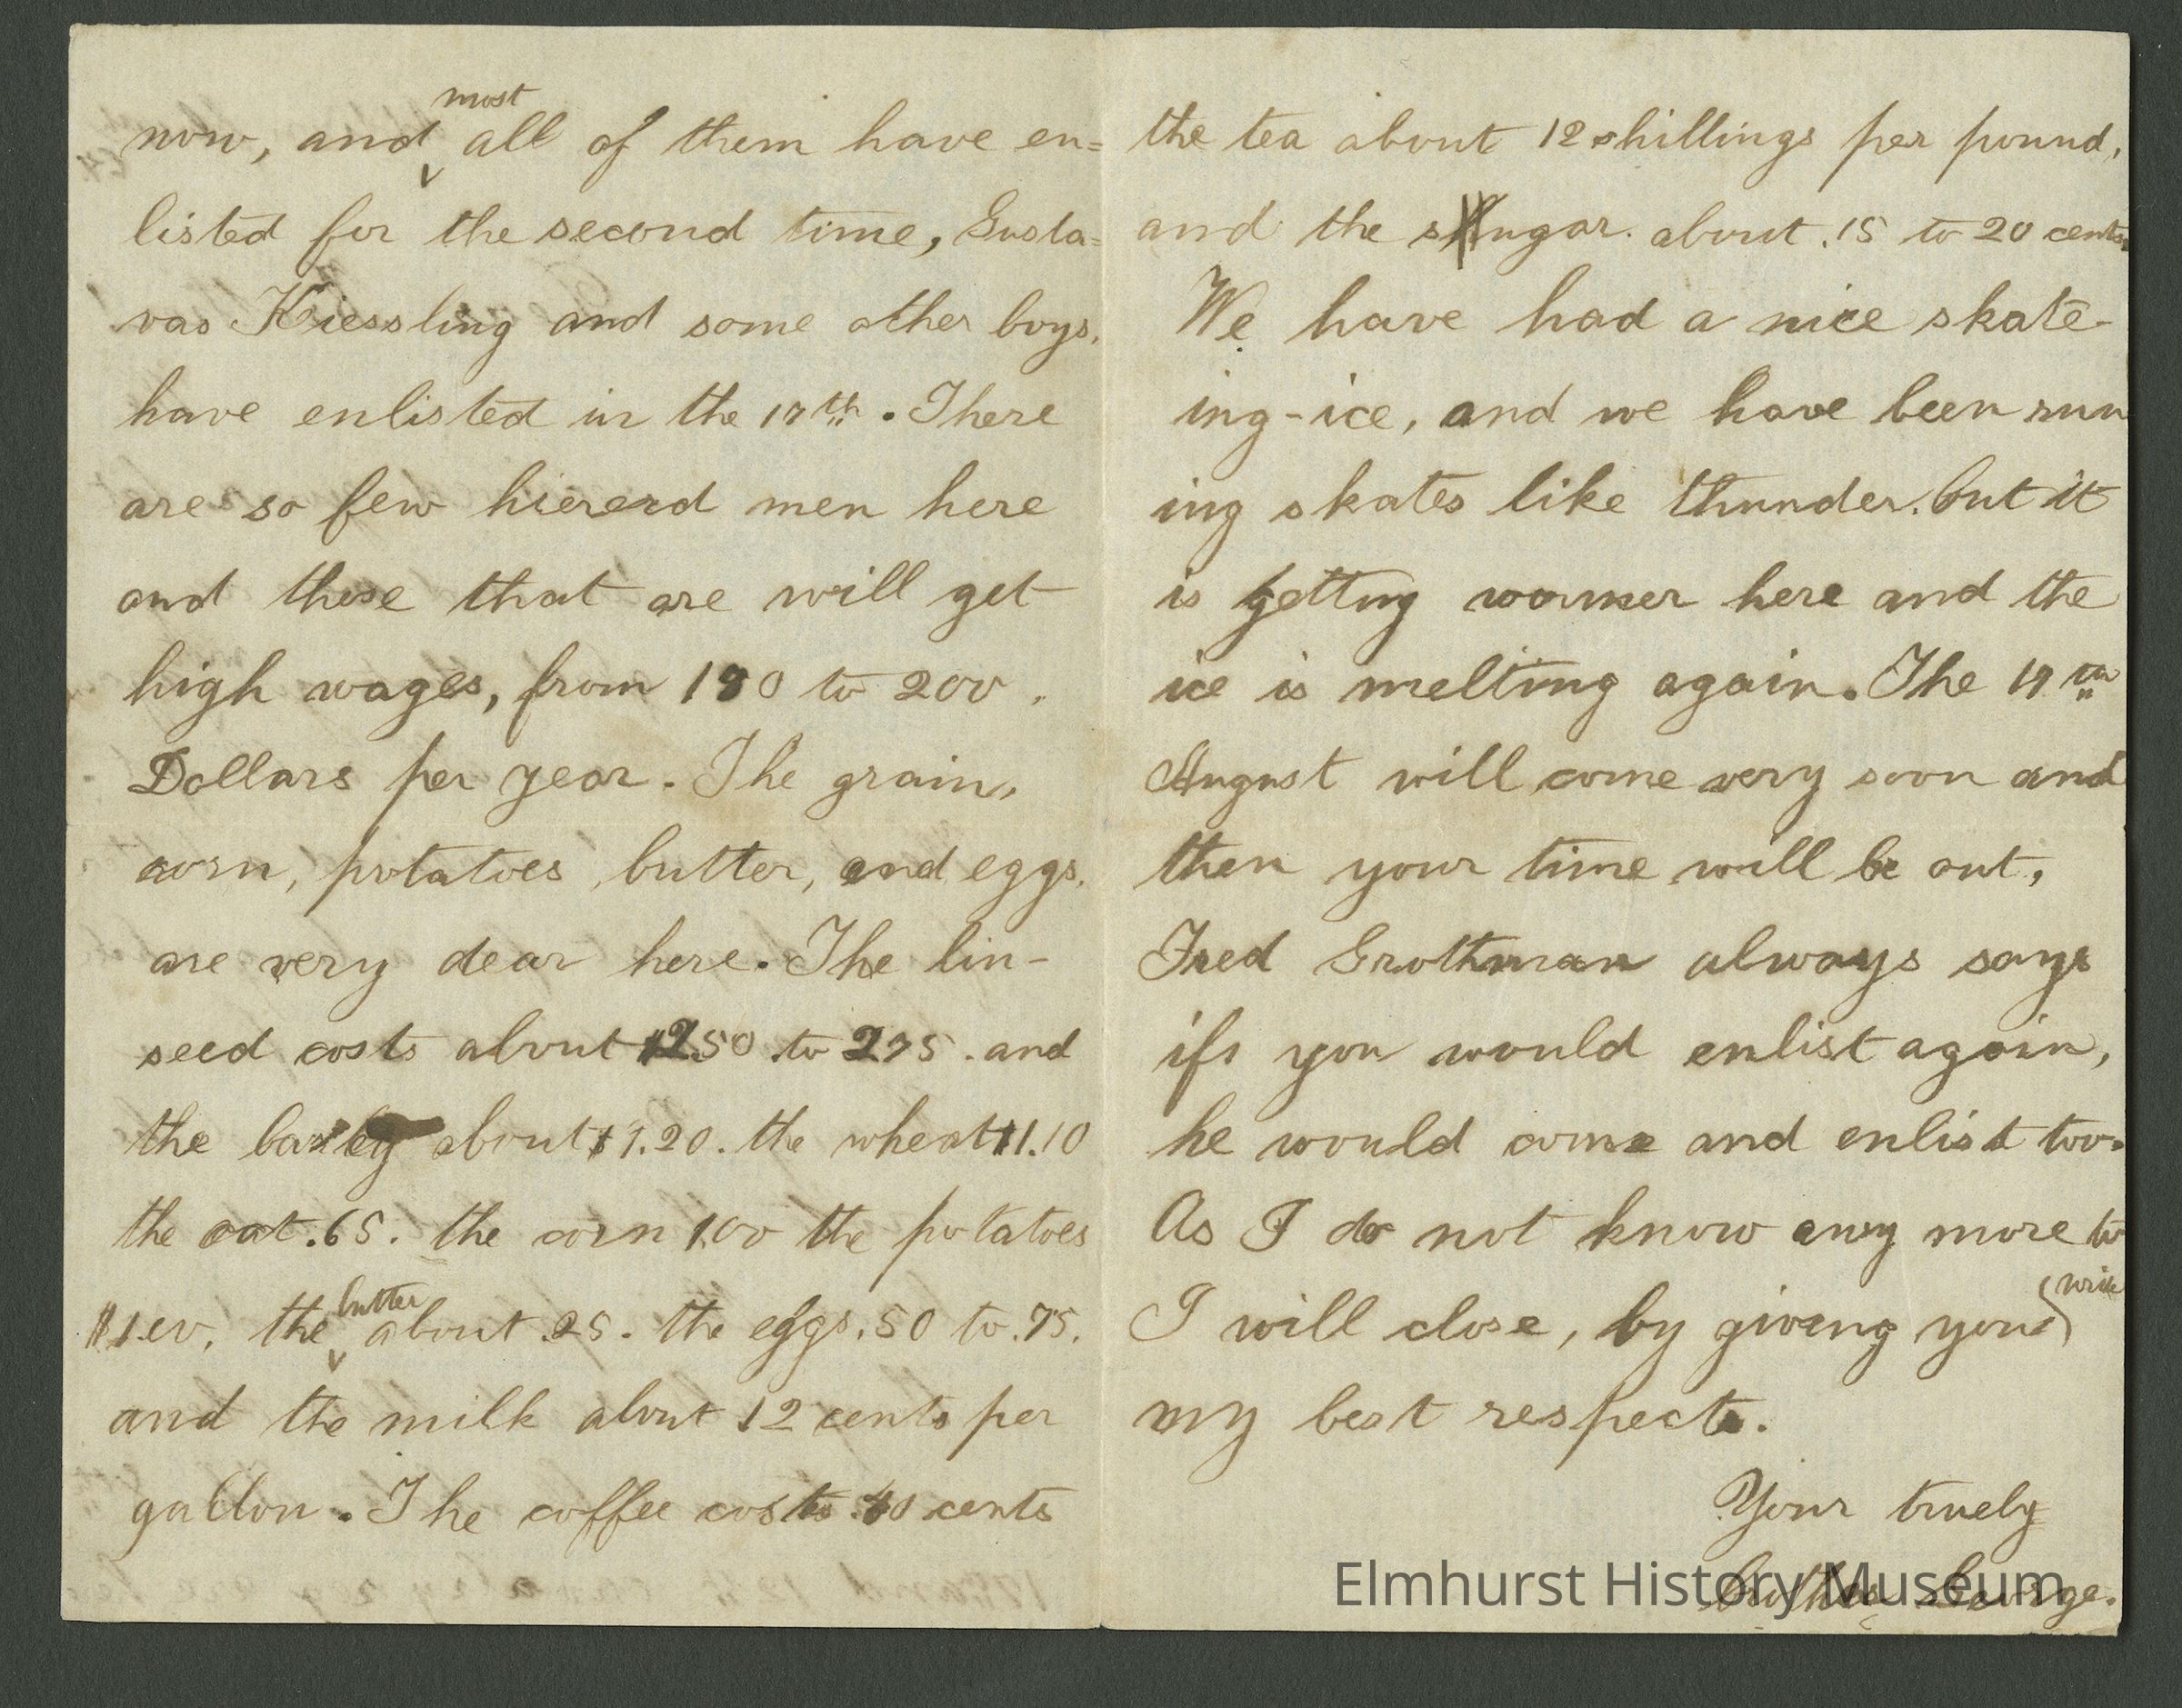 now, and most all of them have en=
listed for the second time, Gusta=
vas Kiessling and some other boys.
have enlisted in the 17th. There
are so few hiererd men here
and these that are will get
high wages, from 180 to 200.
Dollars per year. The grain,
corn, potatoes, butter, and eggs.
are very dear here. The lin-
seed costs about $2.50 to 275. and
the barley about $1.20. the wheat $1.10
the oat .65. the corn 1.00 the potatoes
$1.00. the butter about .25. the eggs .50 to .75.
and the milk about 12 cents per
gallon. The coffee costs cents
the tea about 12 shillings per pound,
and the sugar. about .15 to 20 cents
We have had a nice skate-
ing-ice, and we have been run
ing skates like thunder. but it
is getting warmer here and the
ice is melting again. The 19th
August will come very soon and
then your time will be out,
Fred Grothman always says
if you would enlist again,
he would come and enlist too.
As I do not know any more to
write
I will close, by giveng you
my best respects.
Your truely
brother George.
Elmhurst History Museum